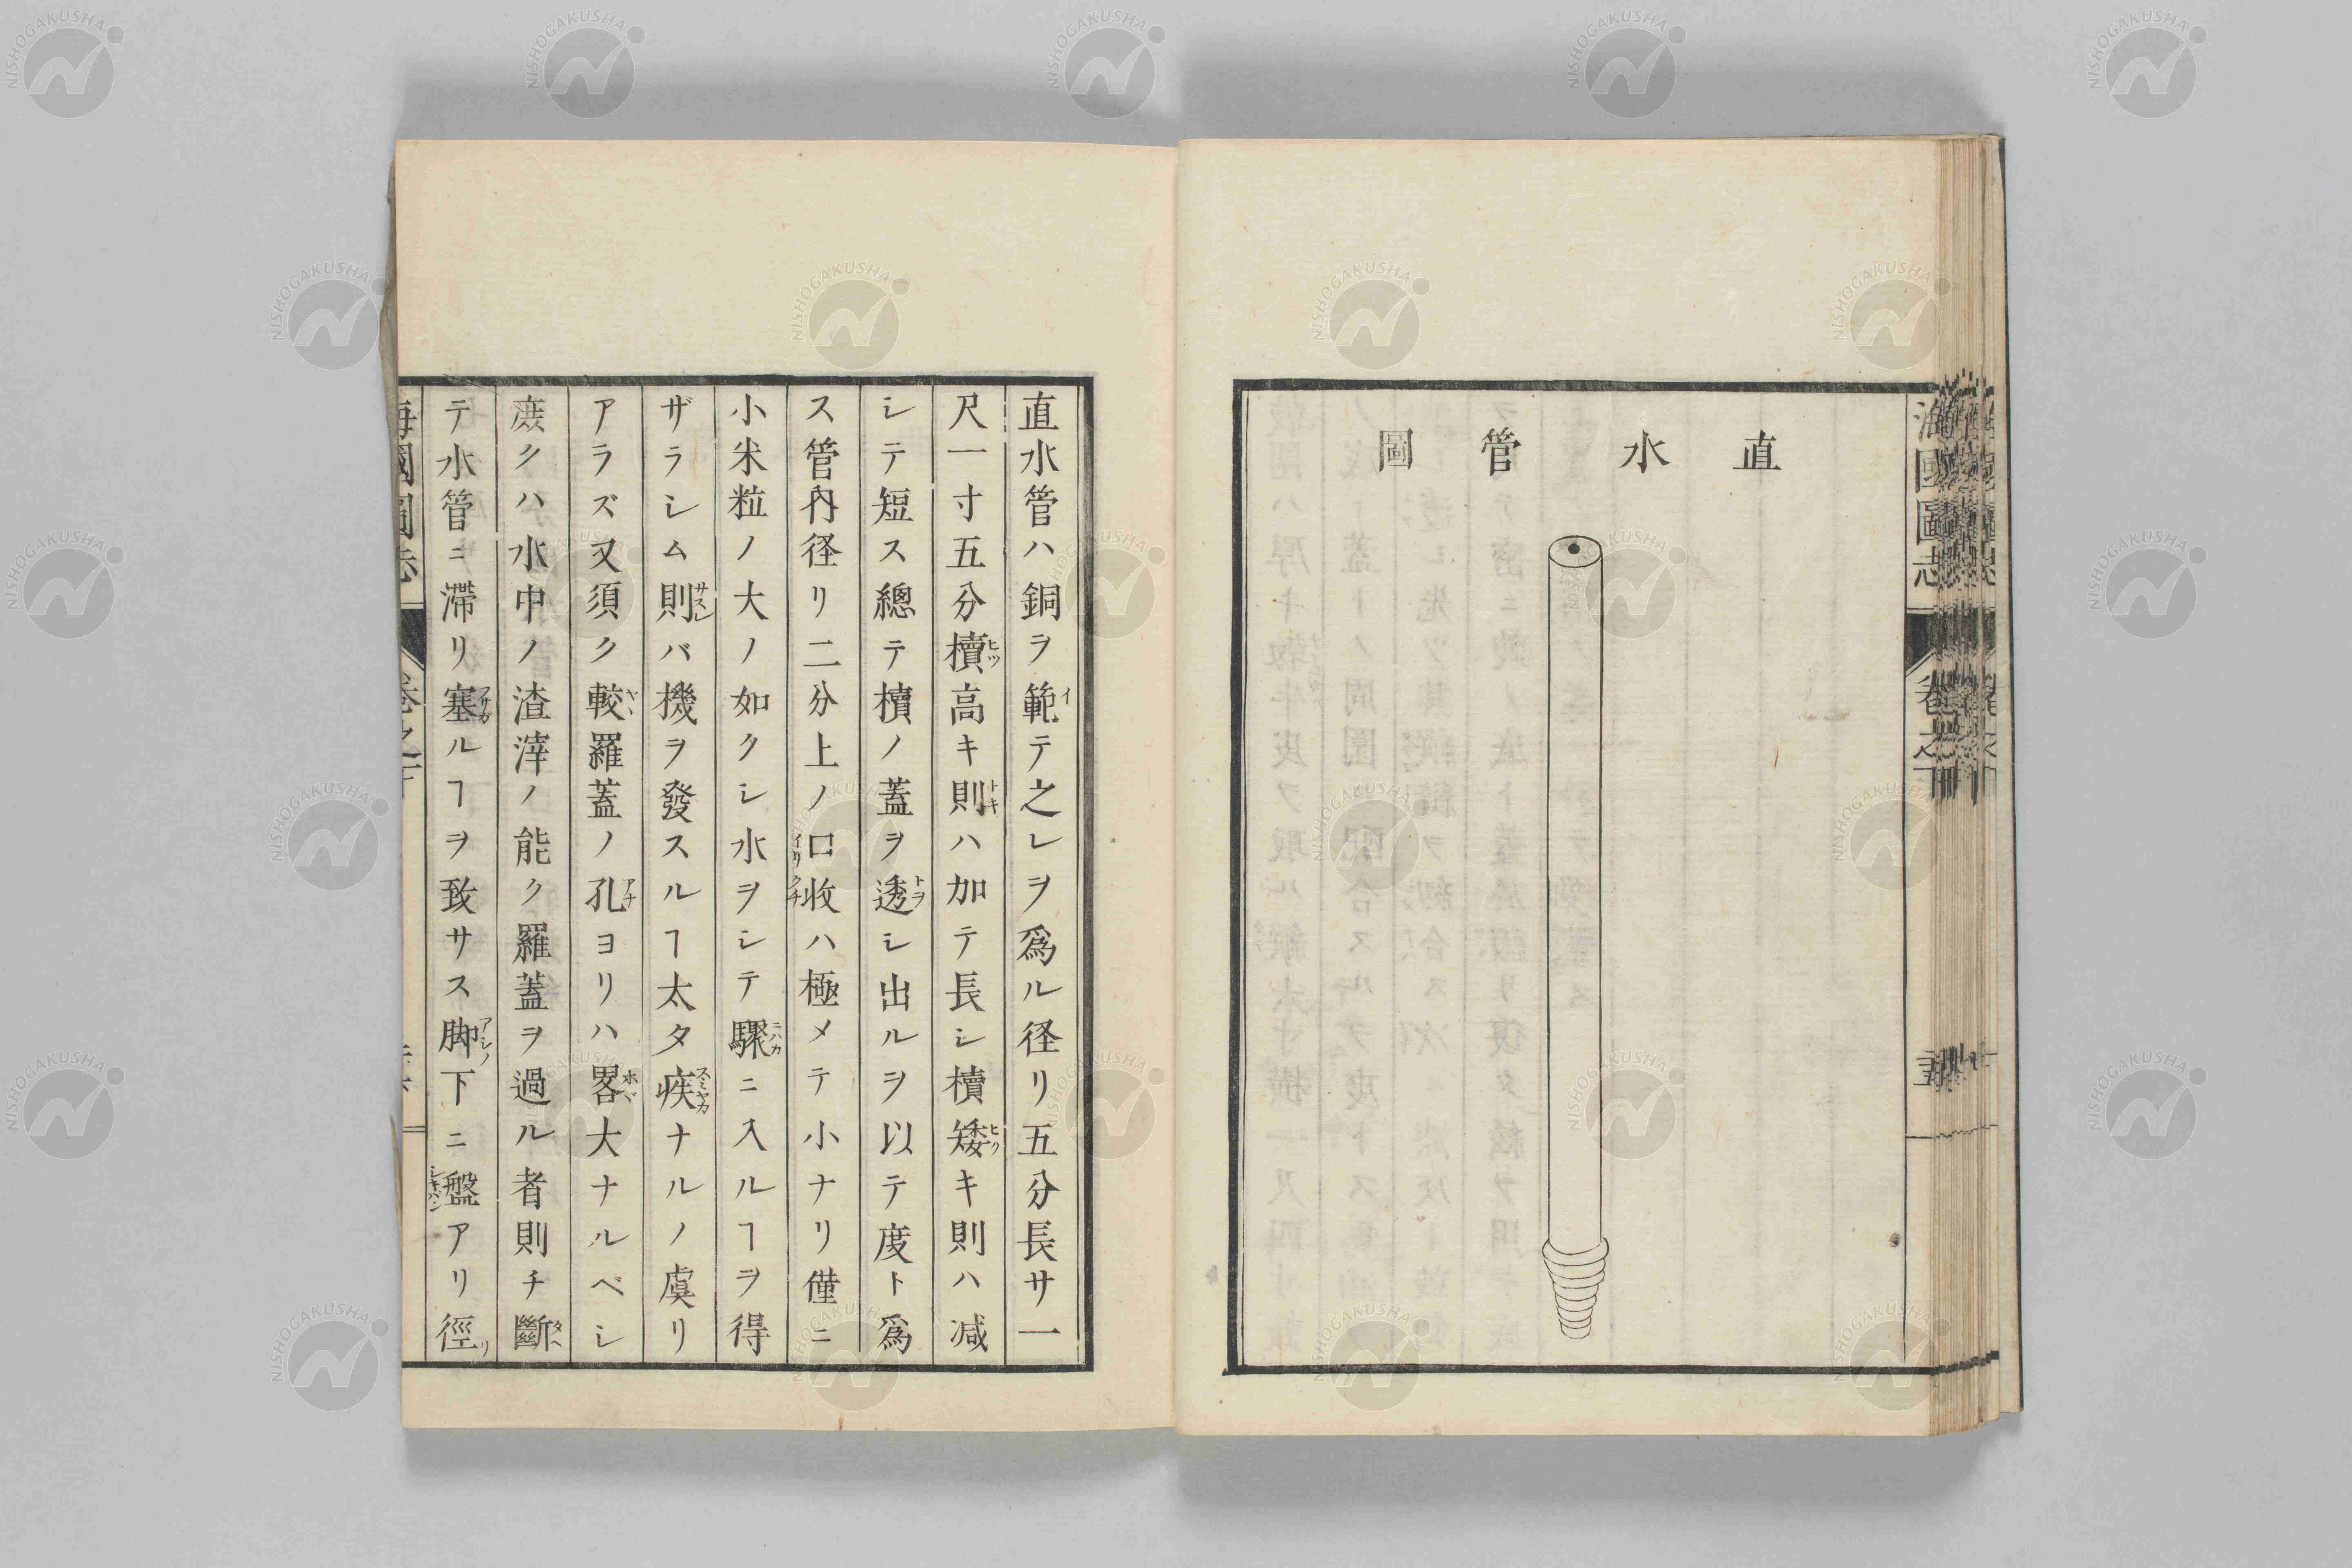 直水管圖
海國圖志
卷之下
直水管ハ銅ヲ範テ之レヲ爲ル径リ五分長サ一
尺一寸五分櫝高キ則ハ加テ長シ櫝矮キ則ハ減
シテ短ス總テ櫝ノ蓋ヲ透シ出ルヲ以テ度ト爲
ス管内径リ二分上ノ口收ハ極メテ小ナリ僅ニ
小米粒ノ大ノ如クシ水ヲシテ驟ニ入ルヿヲ得
ザラシム則バ機ヲ發スルヿ太タ疾ナルノ虞リ
アラズ又須ク較羅蓋ノ孔ヨリハ畧大ナルベシ
庻クハ水中ノ渣滓ノ能ク羅蓋ヲ過ル者則チ斷
テ水管ニ滞リ塞ルヿヲ致サス脚下ニ盤アリ徑
海國圖志
卷之下
NISHOGAKUSHA